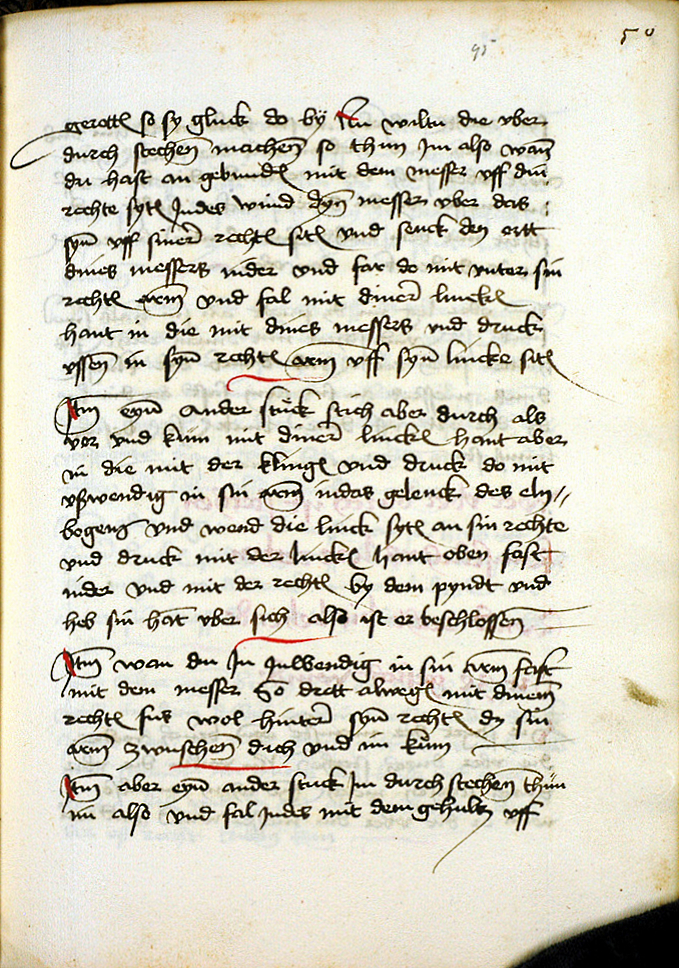 50
95
gerottē so sy gluck do by Itm̄ wiltu die vber
durch stechen machen so thun Im also wan̄
du hast an gebundē mit dem messer vff din
rechte sytē Indes wind dyn̄ messer vber das
syn̄ vff siner rechtē sitē vnd senck den ortt
dines messers nider vnd far do mit vnter sin
rechtē arm̄ vnd fal mit diner linckē
hant in die mit dines messers vnd druck
vssen̄ in syn̄ rechtē arm̄ vff syn̄ lincke sitē
Itm̄ eyn̄ ander stuck stich aber durch als
vor vnd kum mit diner linckē hant aber
in die mit der klingē vnd druck do mit
vßwendig in sin arm̄ in das gelenck des eln //
bogens vnd wend die linck sytē an sin rechte
vnd druck mit der linckē hant oben fast
nider vnd mit der rechtē by dem pyndt vnd
heb sin hāt vber sich also ist er beschlossen̄
Itm̄ wan du Im Inwendig in sin arm̄ fast
mit dem messer So drett alwegē mit dinem̄
rechtē fus wol hinter syn̄ rechtē dz sin
arm̄ zwuschen̄ dich vnd im kum
Itm̄ aber eyn̄ ander stuck Im durch stechen̄ thun
im also vnd fal Indes mit dem gehultz vff